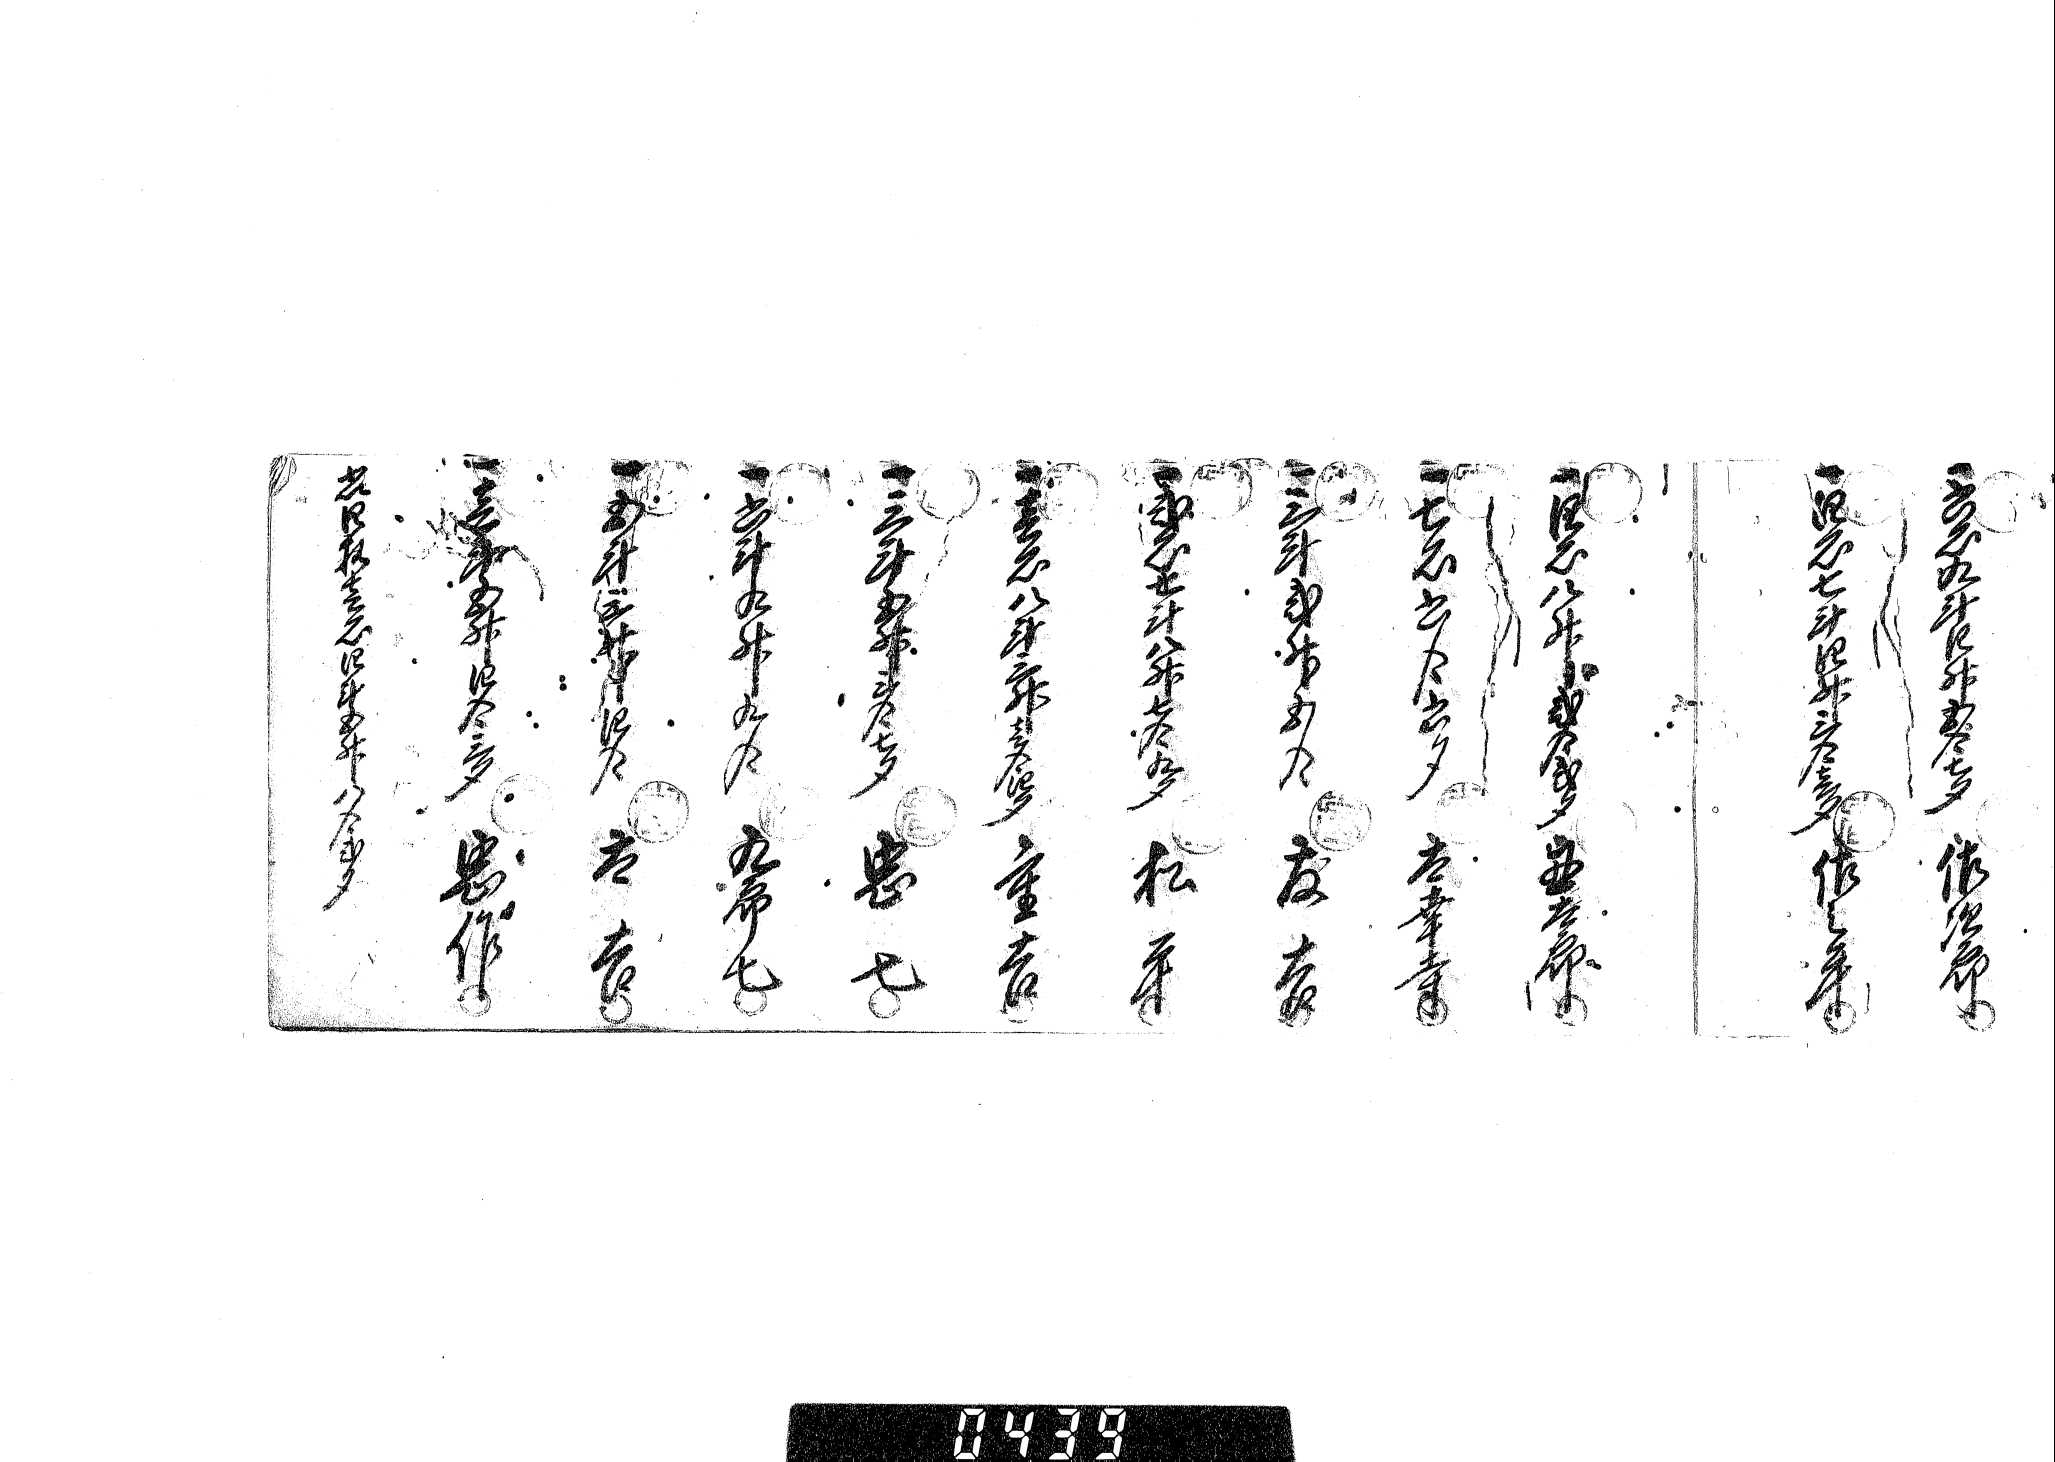 一六石九斗四升五合七夕 作次郎
一四石七斗四升三合壱夕 作之丞
一四石八升弐合弐夕 五左衛門
一七石六合六夕
一三斗弐升五合 友吉
一弐石七斗八升七合九夕 松平
一壱石八斗三升壱合四夕 重吉
一三斗五升三合七夕 忠七
一六斗九升九合 九郎七
一五斗三升四合 吉
一壱斗五升四合三夕 忠作
〆四拾壱石四斗五升八合弐夕
0439